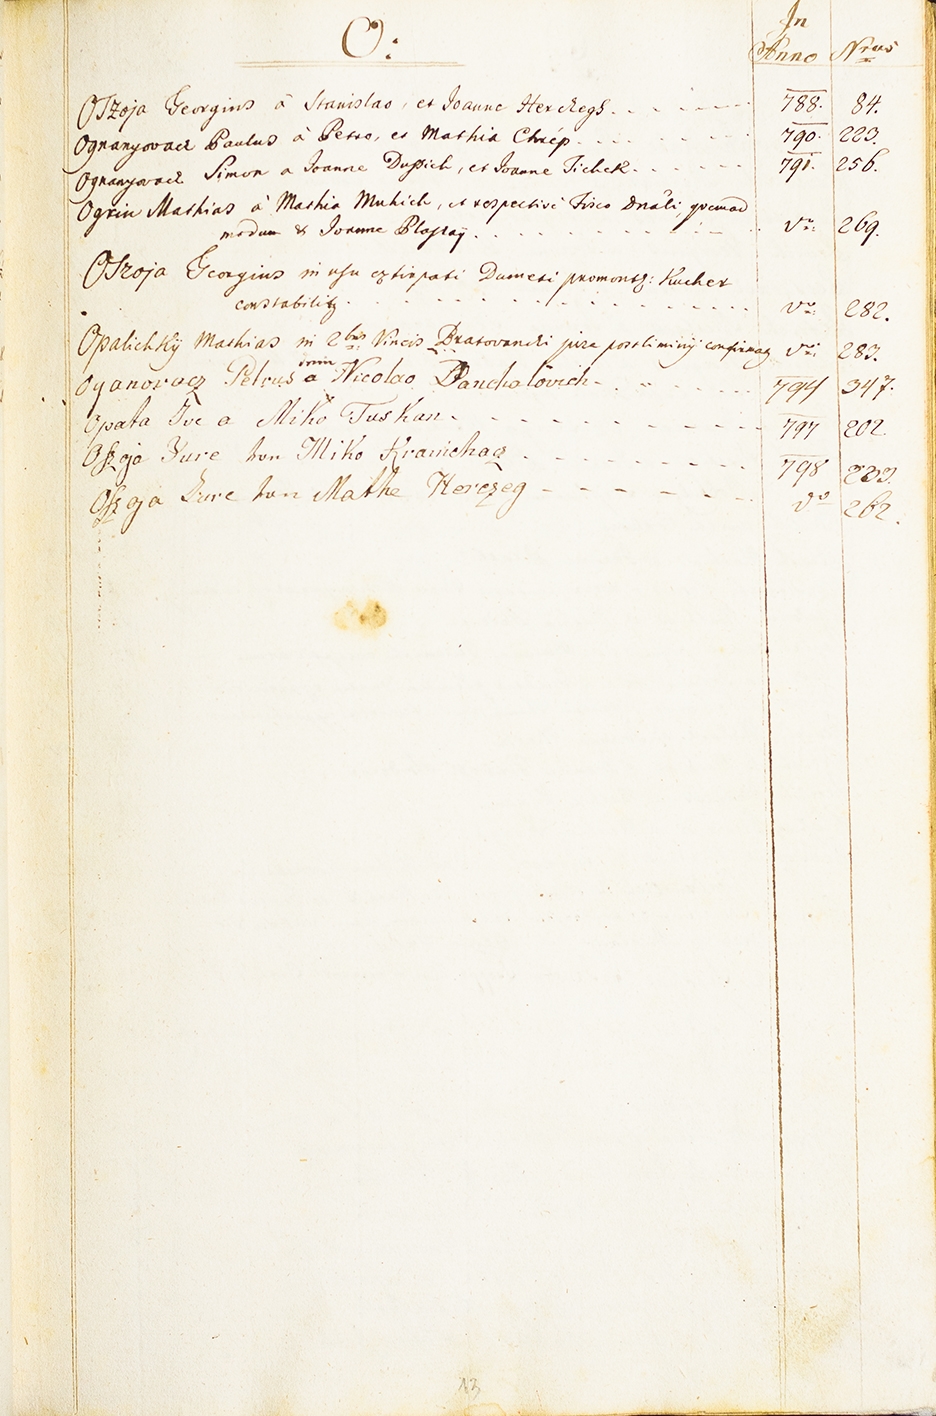 O:
In Anno Nrus
OSzoja Georgius â Stanislao, et Joanne Herczegh 788. 84.
Ognanyovacz Paulus â Petro, et Mathia Chrép 790. 223.
Ognanyovacz Simon a Joanne Dussich, et Joanne Tichek 791. 256.
Ogrin Mathias â Mathia Muhich, et respective Fisco Dnali, quemad
modum & Joanne Plassay dto. 269.
OSzoja Georgius in usu extirpati Dumeti promont: Kucher
constabilitg dto. 282.
Opalichky Mathias in 2bus Vineis Dratovanchi jure postliminy confirmag dto. 283.
Oganovacz Petrus a Nicolao Banchalovich 794 347.
Opata Ive a Miko Tuskan 797 202
Oszoja Jure von Miko Krainchacz 798 223.
Oszoja Jure von Mathe Herczeg dto 262.
13